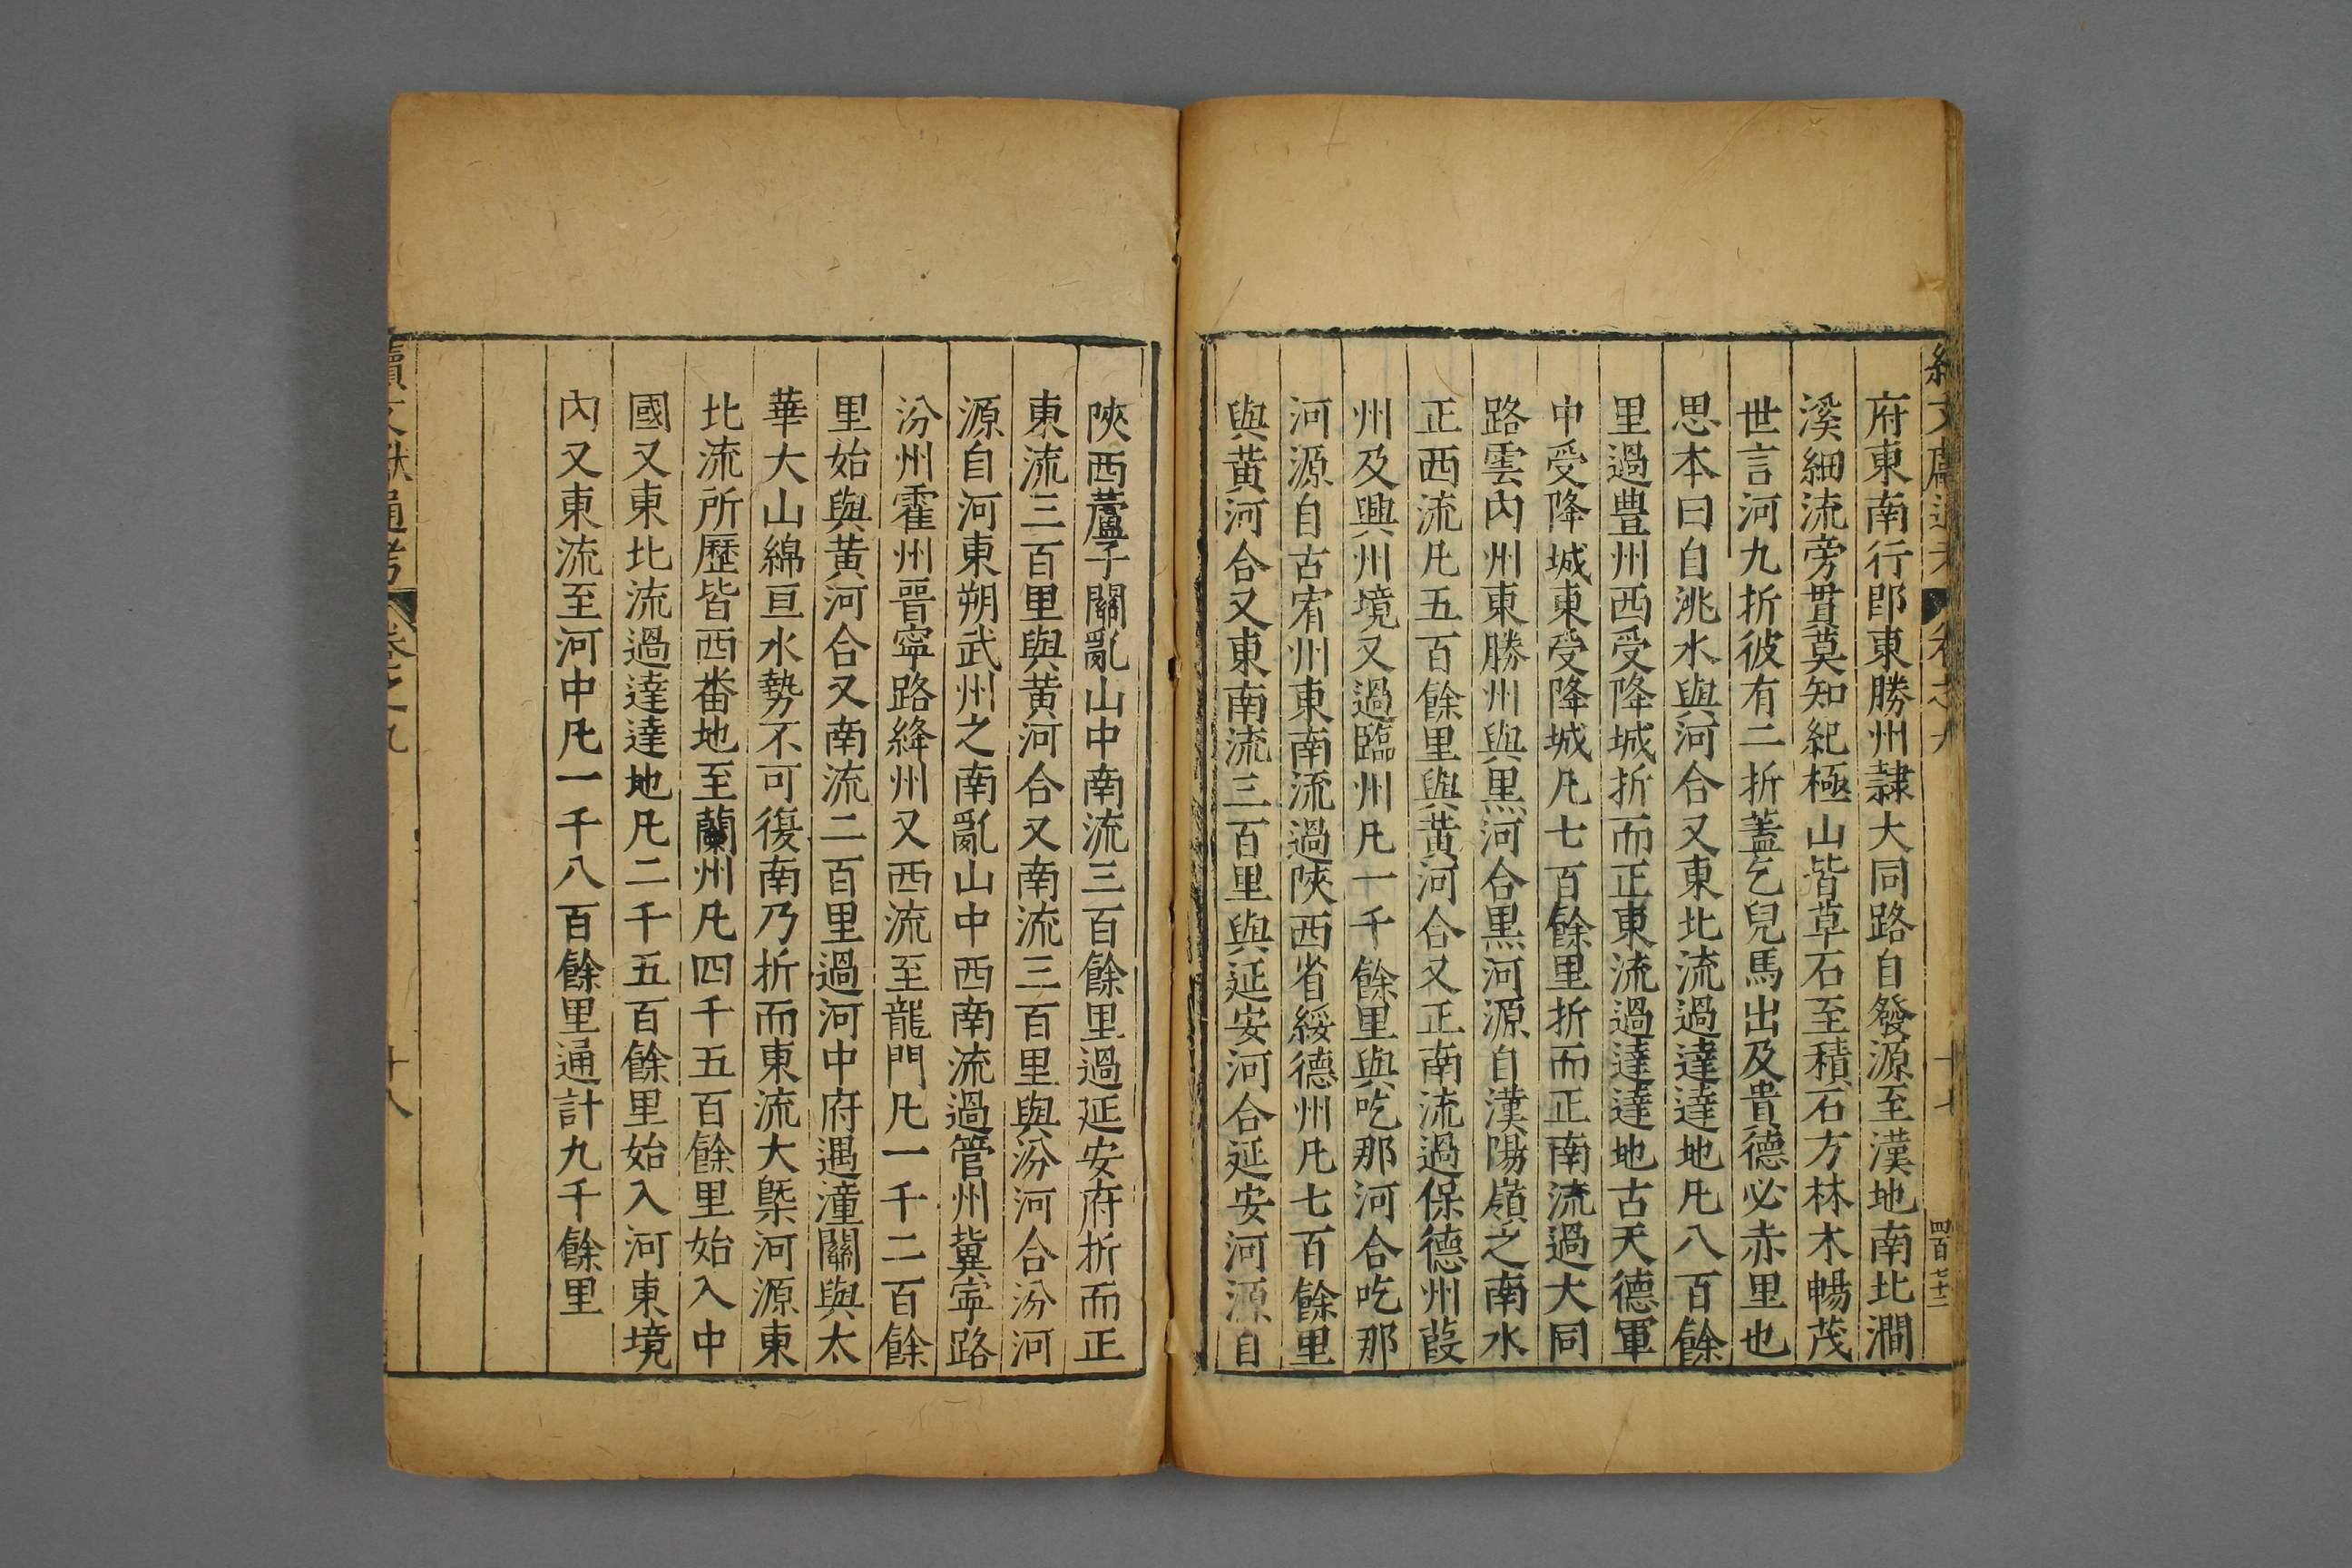 府東南行卽東勝州隷大同路自發源至漢地南北澗
溪細流旁貫莫知紀極山皆草石至積石方林木暢茂
世言河九折彼有二折蓋乞兒馬出及貴德必赤里也
思本曰自洮水與河合又東北流過達達地凡八百餘
里過豊州西受降城折而正東流過達達地古天德軍
中受降城東受降城凡七百餘里折而正南流過大同
路雲內州東勝州與黒河合黒河源自漢陽嶺之南水
正西流凡五百餘里與黃河合又正南流過保德州葭
州及興州境又過臨州凡一千餘里與吃那河合吃那
河源自古宥州東南流過陝西省綏德州凡七百餘里
與黃河合又東南流三百里與延安河合延安河源自
陝西蘆子關亂山中南流三百餘里過延安府折而正
東流三百里與黃河合又南流三百里與汾河合汾河
源自河東朔武州之南亂山中西南流過管州冀寧路
汾州霍州晉寧路絳州又西流至龍門凡一千二百餘
里始與黃河合又南流二百里過河中府遇潼關與太
華大山綿亘水勢不可復南乃折而東流大槩河源東
北流所歷皆西畨地至蘭州凡四千五百餘里始入中
國又東北流過達達地凡二千五百餘里始入河東境
內又東流至河中凡一千八百餘里通計九千餘里
續文獻通考 卷之九 十八